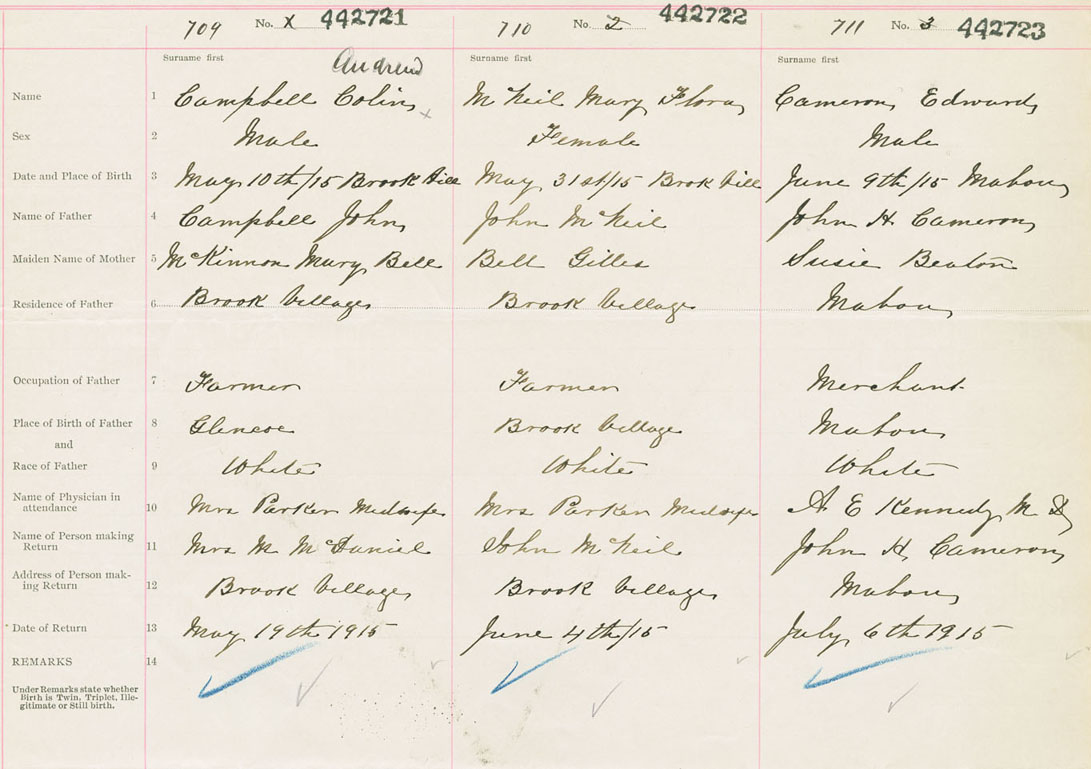 709 No. X 442721 710 No. 2 442722 711 No. 3 442723
Surname first Andrew Surname first Surname first
Name 1 Campbell Colin x McNeil Mary Flora Cameron Edward
Sex 2 Male Female Male
Date and Place of Birth 3 May 10th/15 Brook Vill May 31st/15 Brok Vill June 9th/15 Mabou
Name of Father 4 Campbell John John McNeil John H. Cameron
Maiden Name of Mother 5 McKinnon Mary Bell Bell Gilles Susie Beaton
Residence of Father 6 Brook Village Brook Village Mabou
Occupation of Father 7 Farmer Farmer Merchant
Place of Birth of Father 8 Glencoe Brook Village Mabou
and
Race of Father 9 White White White
Name of Physician in
attendance 10 Mrs Parker Midwife Mrs Parker Midwife A E Kennedy M D
Name of Person making
Return 11 Mrs M McDaniel John McNeil John H. Cameron
Address of Person mak-
ing Return 12 Brook Village Brook Village Mabou
Date of Return 13 May 19th 1915 June 4th/15 July 6th 1915
REMARKS 14
Under Remarks state whether
Birth is Twin, Triplet, Ille-
gitimate or Still birth.